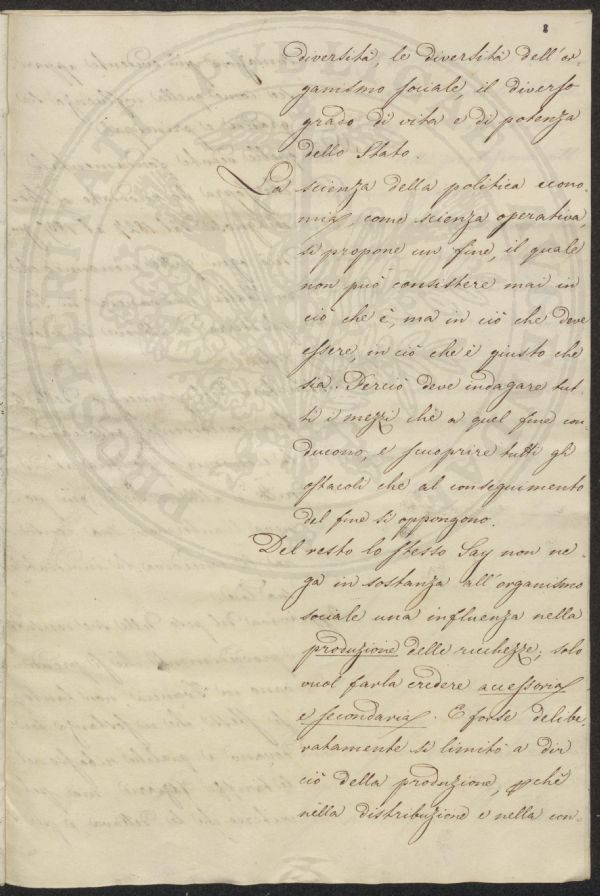 8
diversità, le diversità dell'or-
ganismo sociale, il diverso
grado di vita e di potenza
dello Stato.
La scienza della politica econo-
mia, come scienza operativa,
si propone un fine, il quale
non può consistere mai in
ciò che è, ma in ciò che deve
essere, in ciò che è giusto che
sia. Perciò deve indagare tut-
ti i mezzi che a quel fine con-
ducono, e scuoprire tutti gli
ostacoli che al conseguimento
del fine si oppongono.
Del resto lo stesso Say non ne-
ga in sostanza all'organismo
sociale una influenza nella
produzione delle ricchezze; solo
vuol farla credere accessoria
e secondaria. E forse delibe-
ratamente si limitò a dir
ciò della produzione, pchè
nella distribuzione e nella con-